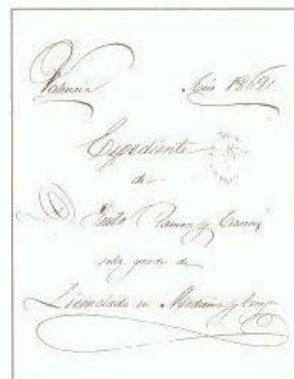 Valencia Año 1864
Expediente
de
D. Justo Ramon y Casasús
sobre grado de
Licenciado en Medicina y Cirug